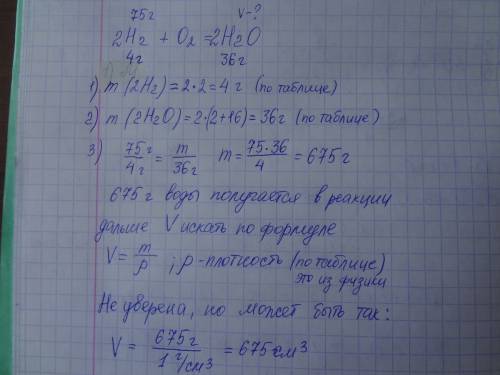 75г V-?
2H₂ + O₂ = 2H₂O
4г 36г
1) m (2H₂) = 2·2 = 4 г (по таблице)
2) m (2H₂O) = 2·(2+16) = 36г (по таблице)
3) 75г/4г = m/36г m = 75·36/4 = 675 г
675 г воды получается в реакции
дальше V искать по формуле
V = m/ρ ; ρ - плотность (по таблице)
это из физики
Не уверена, но может быть так:
V = 675г/1 г/см³ = 675 см³